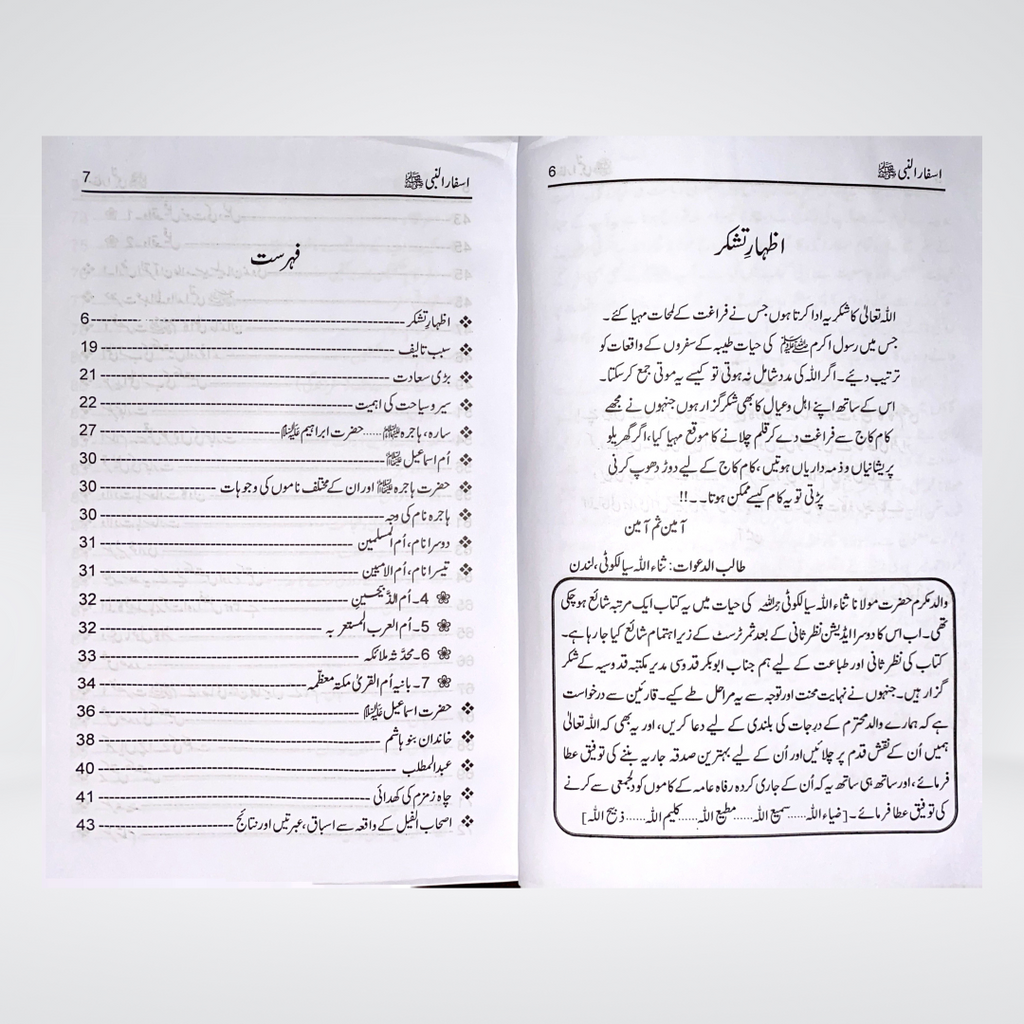 اسفار النبی ﷺ 6
اظہارِ تشکر
اللہ تعالیٰ کا شکریہ ادا کرتا ہوں جس نے فراغت کے لمحات مہیا کئے۔
جس میں رسول اکرم ﷺ کی حیات طیبہ کے سفروں کے واقعات کو
ترتیب دیئے۔ اگر اللہ کی مدد شامل نہ ہوتی تو کیسے یہ موتی جمع کر سکتا۔
اس کے ساتھ اپنے اہل و عیال کا بھی شکر گزار ہوں جنہوں نے مجھے
کام کاج سے فراغت دے کر قلم چلانے کا موقع مہیا کیا، اگر گھریلو
پریشانیاں و ذمہ داریاں ہوتیں، کام کاج کے لیے دوڑ دھوپ کرنی
پڑتی تو یہ کام کیسے ممکن ہوتا۔۔!!
آمین ثم آمین
طالب الدعوات: ثناء اللہ سیالکوٹی، لندن
والد مکرم حضرت مولانا ثناء اللہ سیالکوٹی رحمہ اللہ کی حیات میں یہ کتاب ایک مرتبہ شائع ہو چکی
تھی۔ اب اس کا دوسرا ایڈیشن نظر ثانی کے بعد ثمر ٹرسٹ کے زیر اہتمام شائع کیا جا رہا ہے۔
کتاب کی نظر ثانی اور طباعت کے لیے ہم جناب ابوبکر قدوسی مدیر مکتبہ قدوسیہ کے شکر
گزار ہیں۔ جنہوں نے نہایت محنت اور توجہ سے یہ مراحل طے کیے۔ قارئین سے درخواست
ہے کہ ہمارے والد محترم کے درجات کی بلندی کے لیے دعا کریں، اور یہ بھی کہ اللہ تعالیٰ
ہمیں اُن کے نقش قدم پر چلائیں اور اُن کے لیے بہترین صدقہ جاریہ بننے کی توفیق عطا
فرمائے، اور ساتھ ہی ساتھ یہ کہ اُن کے جاری کردہ رفاہ عامہ کے کاموں کو دلجمعی سے کرنے
کی توفیق عطا فرمائے۔ [ضیاء اللہ......سمیع اللہ......مطیع اللہ......کلیم اللہ......ذبیح اللہ]
اسفار النبی ﷺ 7
فہرست
❖ اظہارِ تشکر 6
❖ سبب تالیف 19
❖ بڑی سعادت 21
❖ سیر و سیاحت کی اہمیت 22
❖ سارہ، ہاجرہ علیہا السلام......حضرت ابراہیم علیہ السلام 27
❖ اُم اسماعیل علیہا السلام 30
❖ حضرت ہاجرہ علیہا السلام اور ان کے مختلف ناموں کی وجوہات 30
❖ ہاجرہ نام کی وجہ 30
❖ دوسرا نام، اُم المسلمین 31
❖ تیسرا نام، اُم الامیین 31
❀ 4۔ اُم الذَّبِیْحَیْنِ 32
❀ 5۔ اُم العرب المستعربہ 32
❀ 6۔ محدَّثہ ملائکہ 33
❀ 7۔ بانیہ اُم القریٰ مکتہ معظّمہ 34
❖ حضرت اسماعیل علیہ السلام 36
❖ خاندان بنو ہاشم 38
❖ عبدالمطلب 40
❖ چاہ زمزم کی کھدائی 41
❖ اصحاب الفیل کے واقعہ سے اسباق، عبرتیں اور نتائج 43